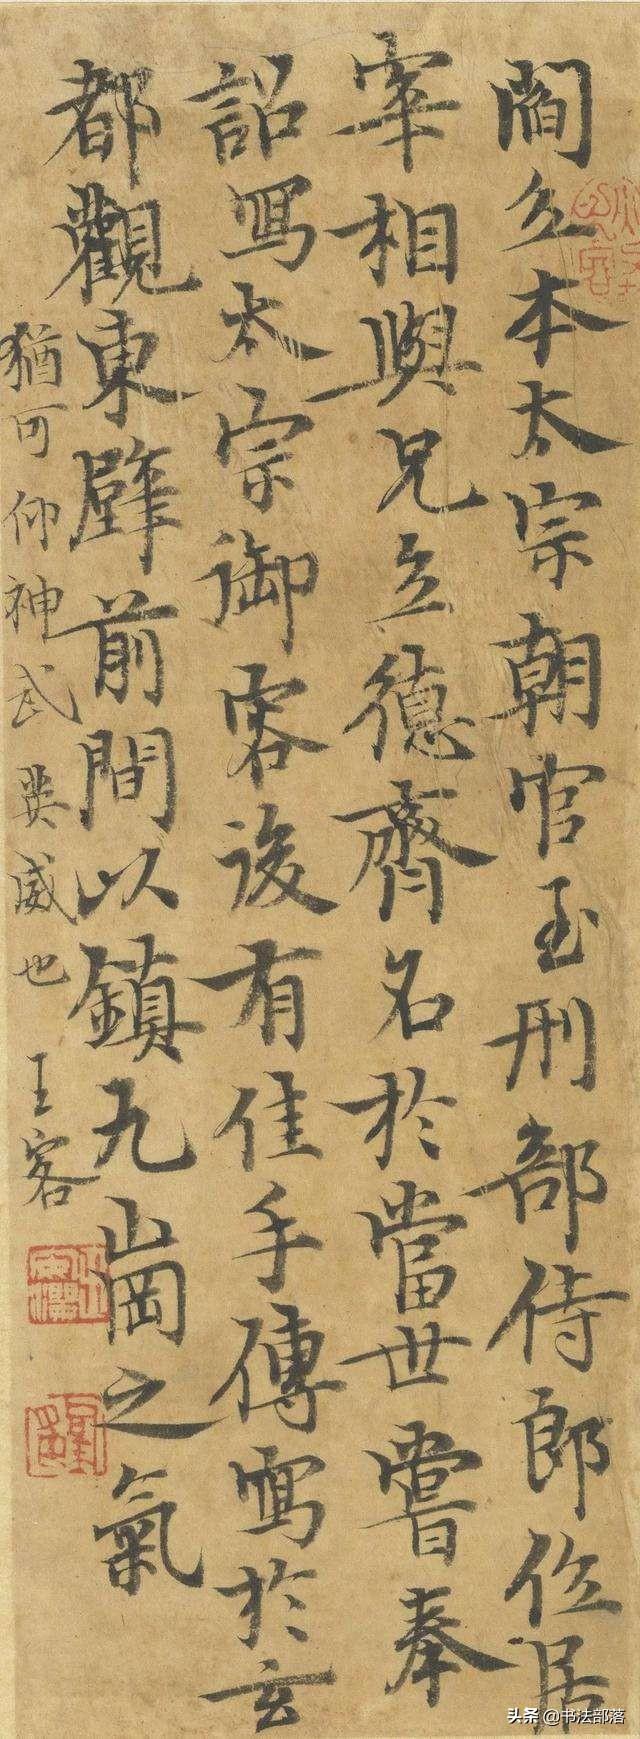 閻立本太宗朝官至刑部侍郎位居
宰相與兄立德齊名於當世嘗奉
詔寫太宗御容後有佳手傳寫於玄
都觀東壁前間以鎮九崗之氣
猶可仰神武英威也 王客
头条 @书法部落